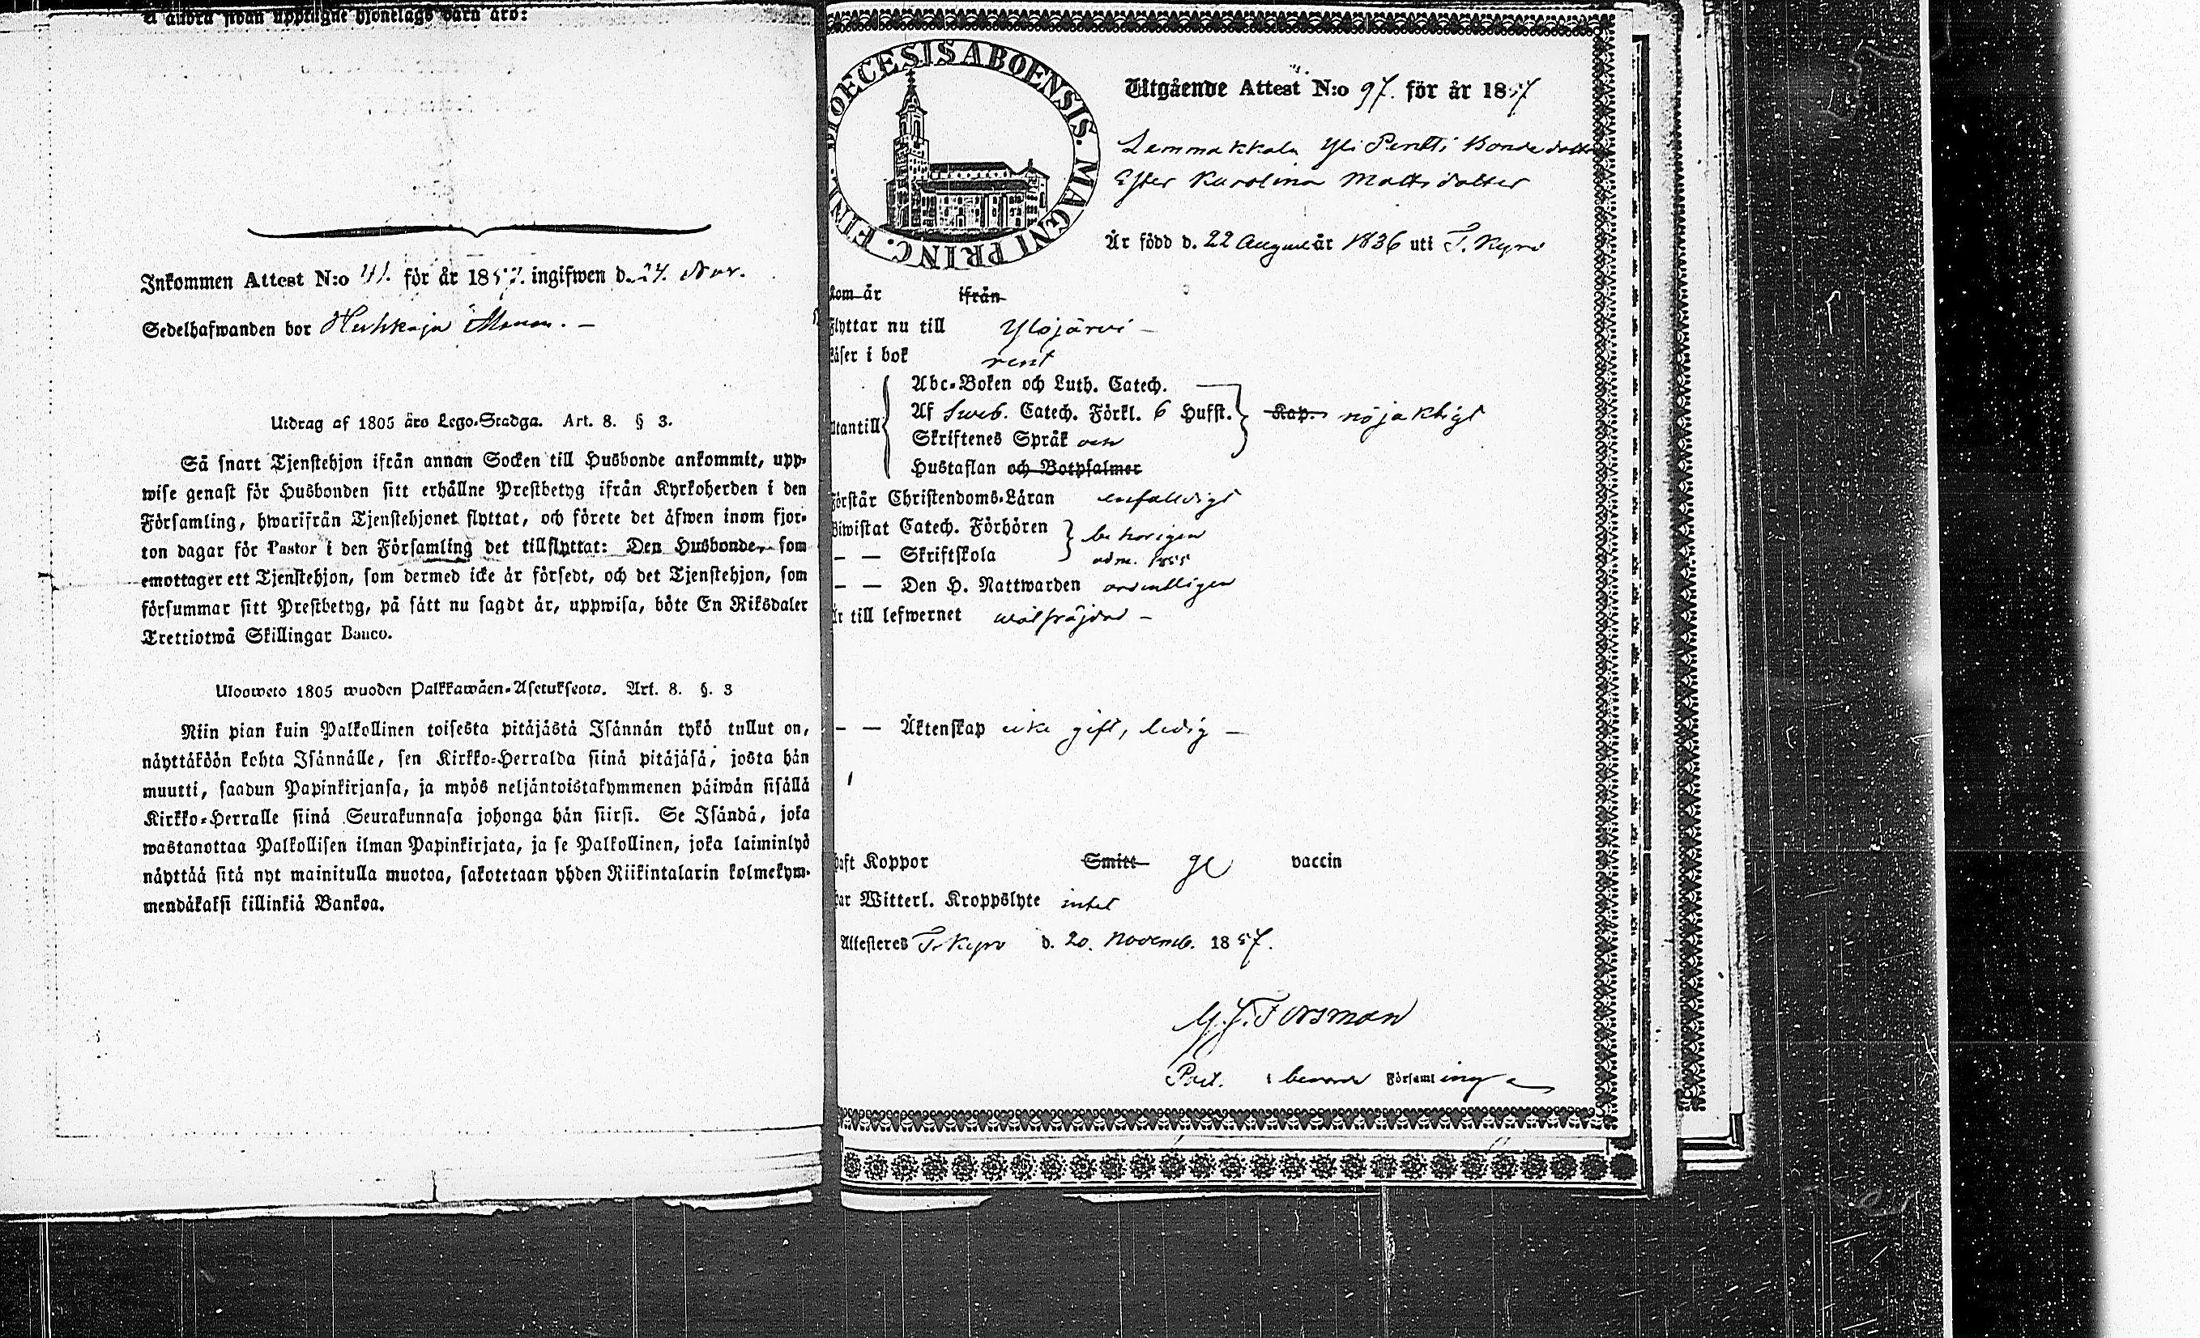 å andra sidan upptagne hjonelags barn äro:
Inkommen Attest N:o 41. för år 1857. ingifwen d. 24. Nov.
Sedelhafwanden bor
Utdrag af 1805 års Lego-Stadga. Art. 8. § 3.
Så snart Tjenstehjon ifrån annan Socken till Husbonde ankommit, upp-
wise genast för Husbonden sitt erhållne Prestbetyg ifrån Kyrkoherden i den
Församling, hwarifrån Tjenstehjonet flyttat, och förete det äfwen inom fjor-
ton dagar för Pastor i den Församling det tillflyttat: Den Husbonde, som
emottager ett Tjenstehjon, som dermed icke är försedt, och det Tjenstehjon, som
försummar sitt Prestbetyg, på sätt nu sagdt är, uppwisa, böte En Riksdaler
Trettiotwå Skillingar Banco.
Ulosweto 1805 wuoden Palkkawäen-Asetuksesta. Art. 8. §. 3
Niin pian kuin Palkollinen toisesta pitäjästä Isännän tykö tullut on,
näyttäköön kohta Isännälle, sen Kirkko-Herralda siinä pitäjäsä, josta hän
muutti, saadun Papinkirjansa, ja myös neljäntoistakymmenen päiwän sisällä
Kirkko-Herralle siinä Seurakunnasa johonga hän siirsi. Se Isändä, joka
wastanottaa Palkollisen ilman Papinkirjata, ja se Palkollinen, joka laiminlyö
näyttää sitä nyt mainitulla muotoa, sakotetaan yhden Riikintalarin kolmekym-
mendäkaksi killinkiä Bankoa.
DIOECESIS ABOENSIS. MAGNI PRINC. FINL.
Utgående Attest N:o 97. för år 1857
Lammakkala Yli Pentti Bondedotter
Ester Karolina Mattsdotter
Är född d. 22 August år 1836 uti T. Kyro
kom år ifrån
Flyttar nu till Ylöjärvi –
Läser i bok rent
Utantill Abc-Boken och Luth. Catech. —
Af Sweb. Catech. Förkl. 6 Hufst. Kap. nöjaktigt
Skriftenes Språk och
Hustaflan och Botpsalmer
Förstår Christendoms-Läran enfalldigt
Biwistat Catech. Förhören behörigen
— — Skriftskola adm. 1855
— — Den H. Nattwarden ordentligen
Är till lefwernet wälfräjdad –
— — Äktenskap icke gift, ledig –
haft Koppor Smitt ge vaccin
Har Witterl. Kroppslyte intet
Attesteres T. Kyro d. 20. Novemb. 1857.
Forsman
Past. i Församling